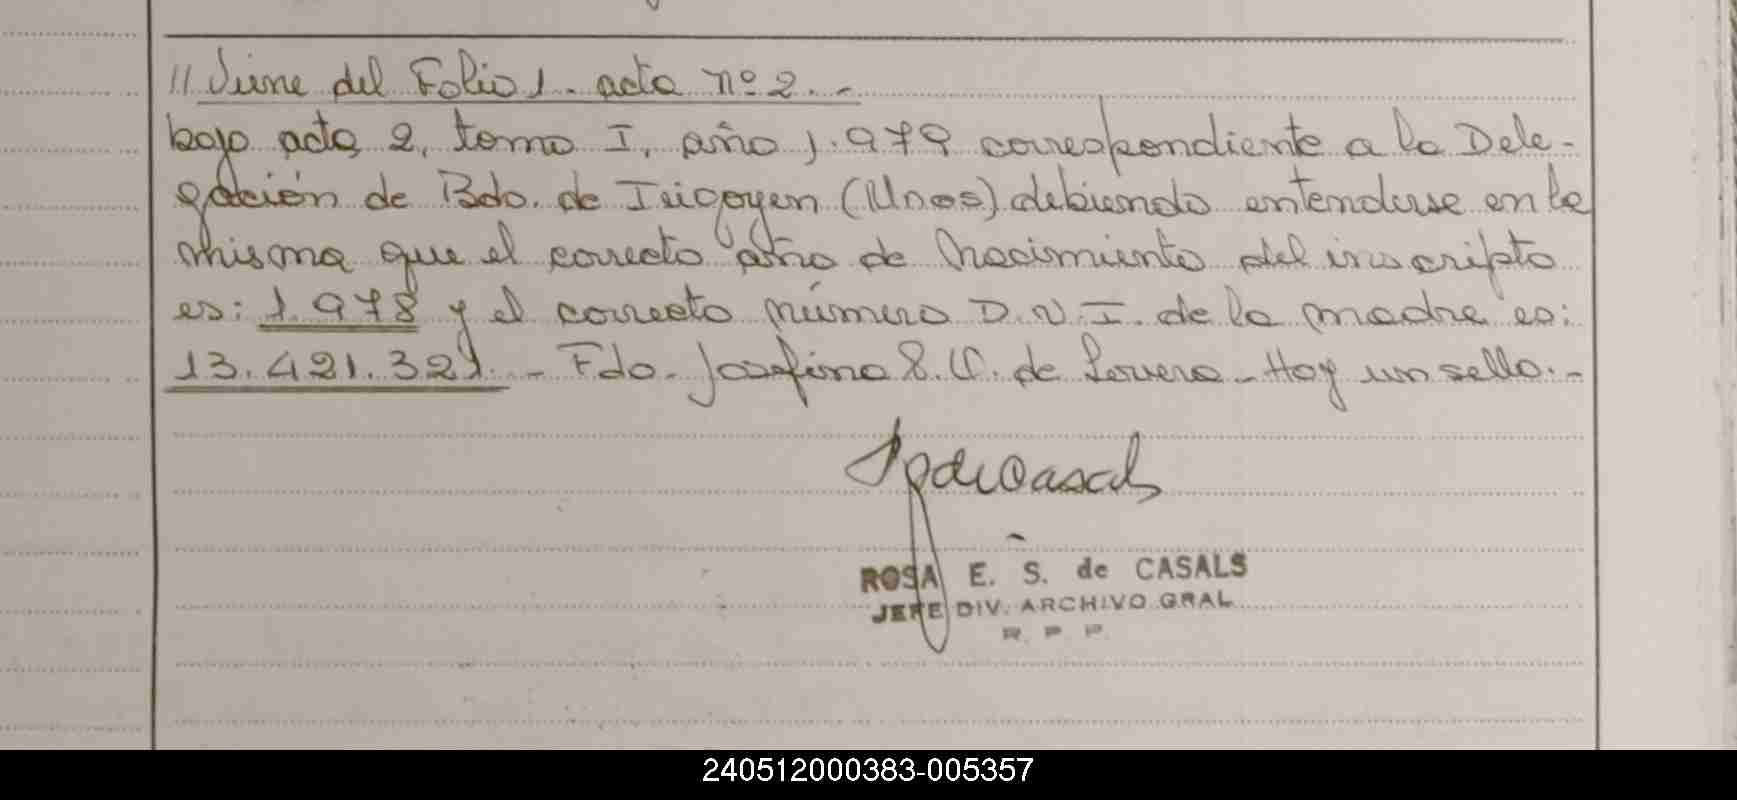 // Viene del Folio 1. acta nº 2. -
bajo acta 2, tomo I, año 1.979 correspondiente a la Dele-
gación de Bdo. de Irigoyen (Mnes) debiendo entenderse en la
misma que el correcto año de nacimiento del inscripto
es: 1.978 y el correcto número D.N.I. de la madre es:
13.421.321. - Fdo. Josefina S. de - Hay un sello. -
ROSA E. S. de CASALS
JEFE DIV. ARCHIVO GRAL
R. P. P.
240512000383-005357